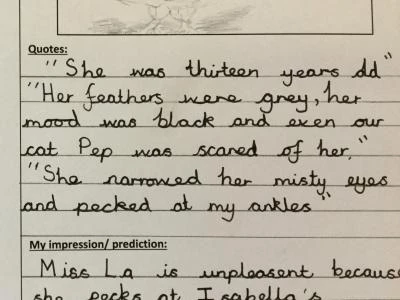 Quotes:
"She was thirteen years old"
"Her feathers were grey, her
mood was black and even our
cat Pep was scared of her."
"She narrowed her misty eyes
and pecked at my ankles"
My impression/ prediction:
Miss La is unpleasent because
she pecks at Isabella's